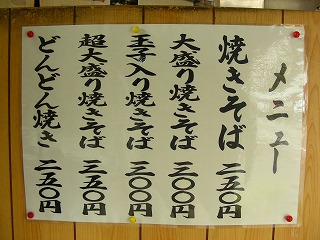 メニュー
焼きそば 二五〇円
大盛り焼きそば 三〇〇円
玉子入り焼きそば 三〇〇円
超大盛り焼きそば 三五〇円
どんどん焼き 二五〇円